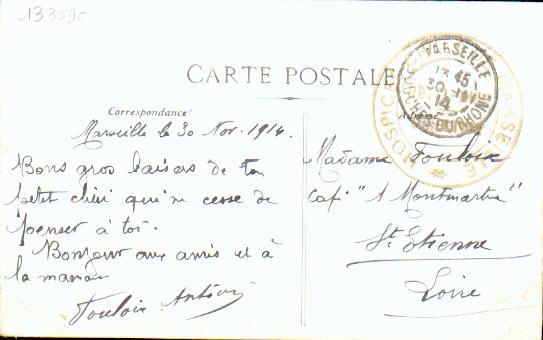 133590
CARTE POSTALE
Correspondance
Adresse
Marseille le 30 Nov. 1914.
Bons gros baisers de ton
petit chéri qui ne cesse de
penser à toi.
Bonjour aux amis et à
la maman
Fouloix
Madame Fouloix
Café "A Montmartre"
St. Etienne
Loire
MARSEILLE
13 45
30
14
B. DU RHONE
HOSPICE
MARSEILLE